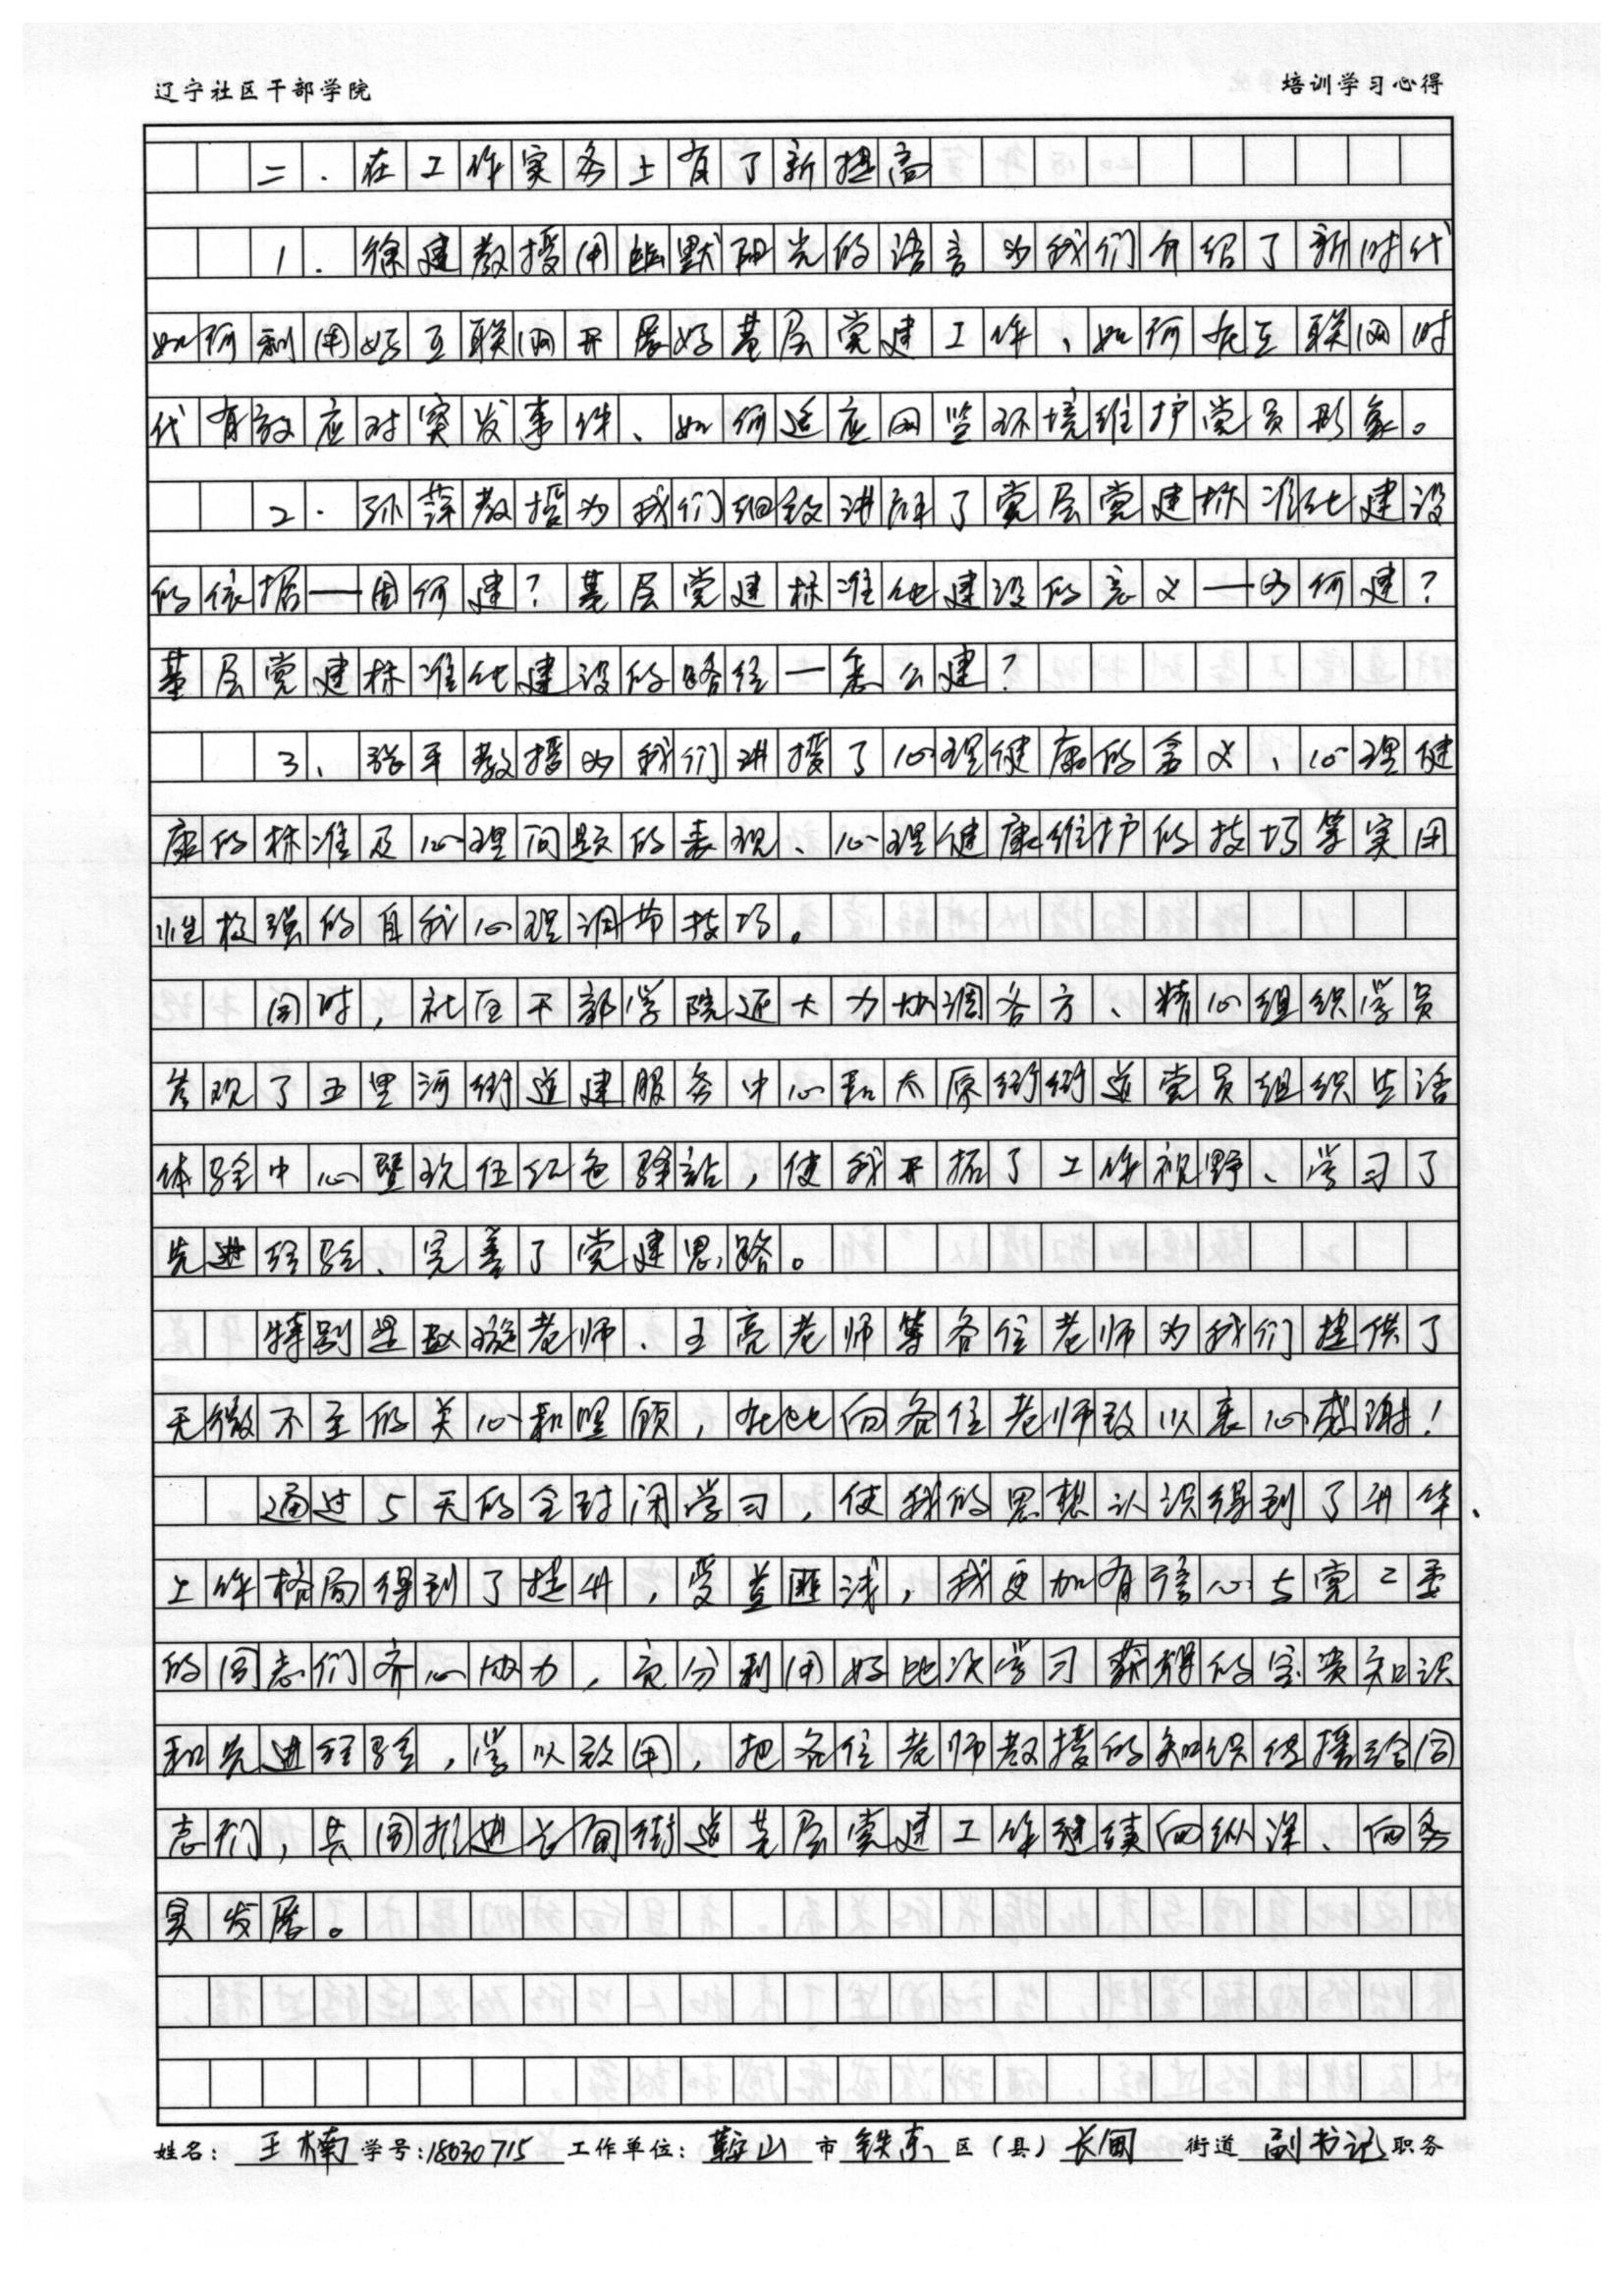 辽宁社区干部学院
培训学习心得
二.在工作实务上有了新提高
1.徐建教授用幽默阳光的语言为我们介绍了新时代
如何利用好互联网开展好基层党建工作、如何在互联网时
代有效应对突发事件、如何适应网监环境维护党员形象。
2.孙萍教授为我们细致讲解了党层党建标准化建设
的依据—因何建?基层党建标准化建设的意义—为何建?
基层党建标准化建设的路径—怎么建?
3、张平教授为我们讲授了心理健康的含义、心理健
康的标准及心理问题的表现、心理健康维护的技巧等实用
性极强的自我心理调节技巧。
同时,社区干部学院还大力协调各方、精心组织学员
参观了五里河街道建服务中心和太原街街道党员组织生活
体验中心暨玖伍红色驿站,使我开拓了工作视野、学习了
先进经验、完善了党建思路。
特别是赵璇老师、王亮老师等各位老师为我们提供了
无微不至的关心和照顾,在此向各位老师致以衷心感谢!
通过5天的全封闭学习,使我的思想认识得到了升华、
工作格局得到了提升,受益匪浅,我更加有信心与党工委
的同志们齐心协力,充分利用好此次学习获得的宝贵知识
和先进经验,学以致用,把各位老师教授的知识传播给同
志们,共同推进长甸街道基层党建工作继续向纵深、向务
实发展。
姓名:王楠学号:18030715工作单位:鞍山市铁东区(县)长甸街道副书记职务